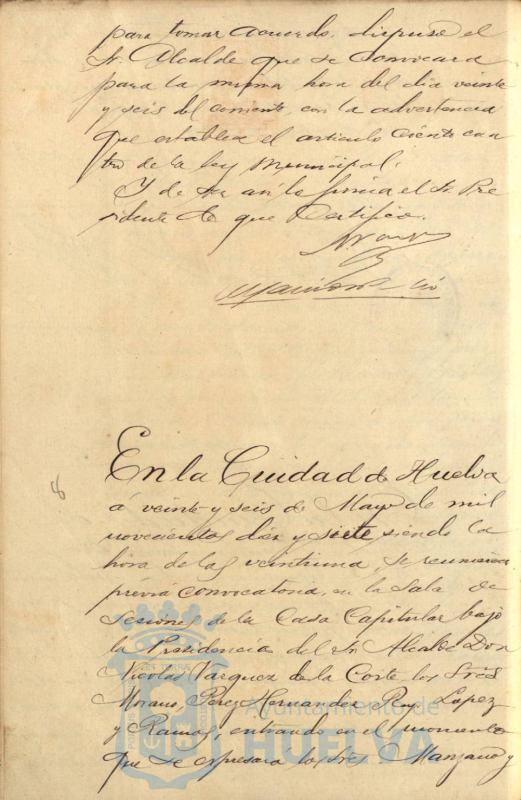 para tomar acuerdo, dispuso el
Sr. Alcalde que se convocara
para la misma hora del dia veinte
y seis del corriente, con la advertencia
que establece el articulo ciento cua
tro de la ley Municipal.
Y de ser asi la firma el Sr. Pre
sidente de que Certifico.
En la Ciudad de Huelva
á veinte y seis de Mayo de mil
novecientos diez y siete siendo la
hora de las veintiuna, se reunieron
prévia convocatoria, en la Sala de
Sesiones de la Casa Capitular bajo
la Presidencia del Sr. Alcalde Don
Nicolas Vazquez de la Corte, los Sres
Morano, Perez Hernandez, Lopez
y Ramos, entrando en el momento
que se espresará los Sres Manzano y
8
Ayuntamiento de
HUELVA